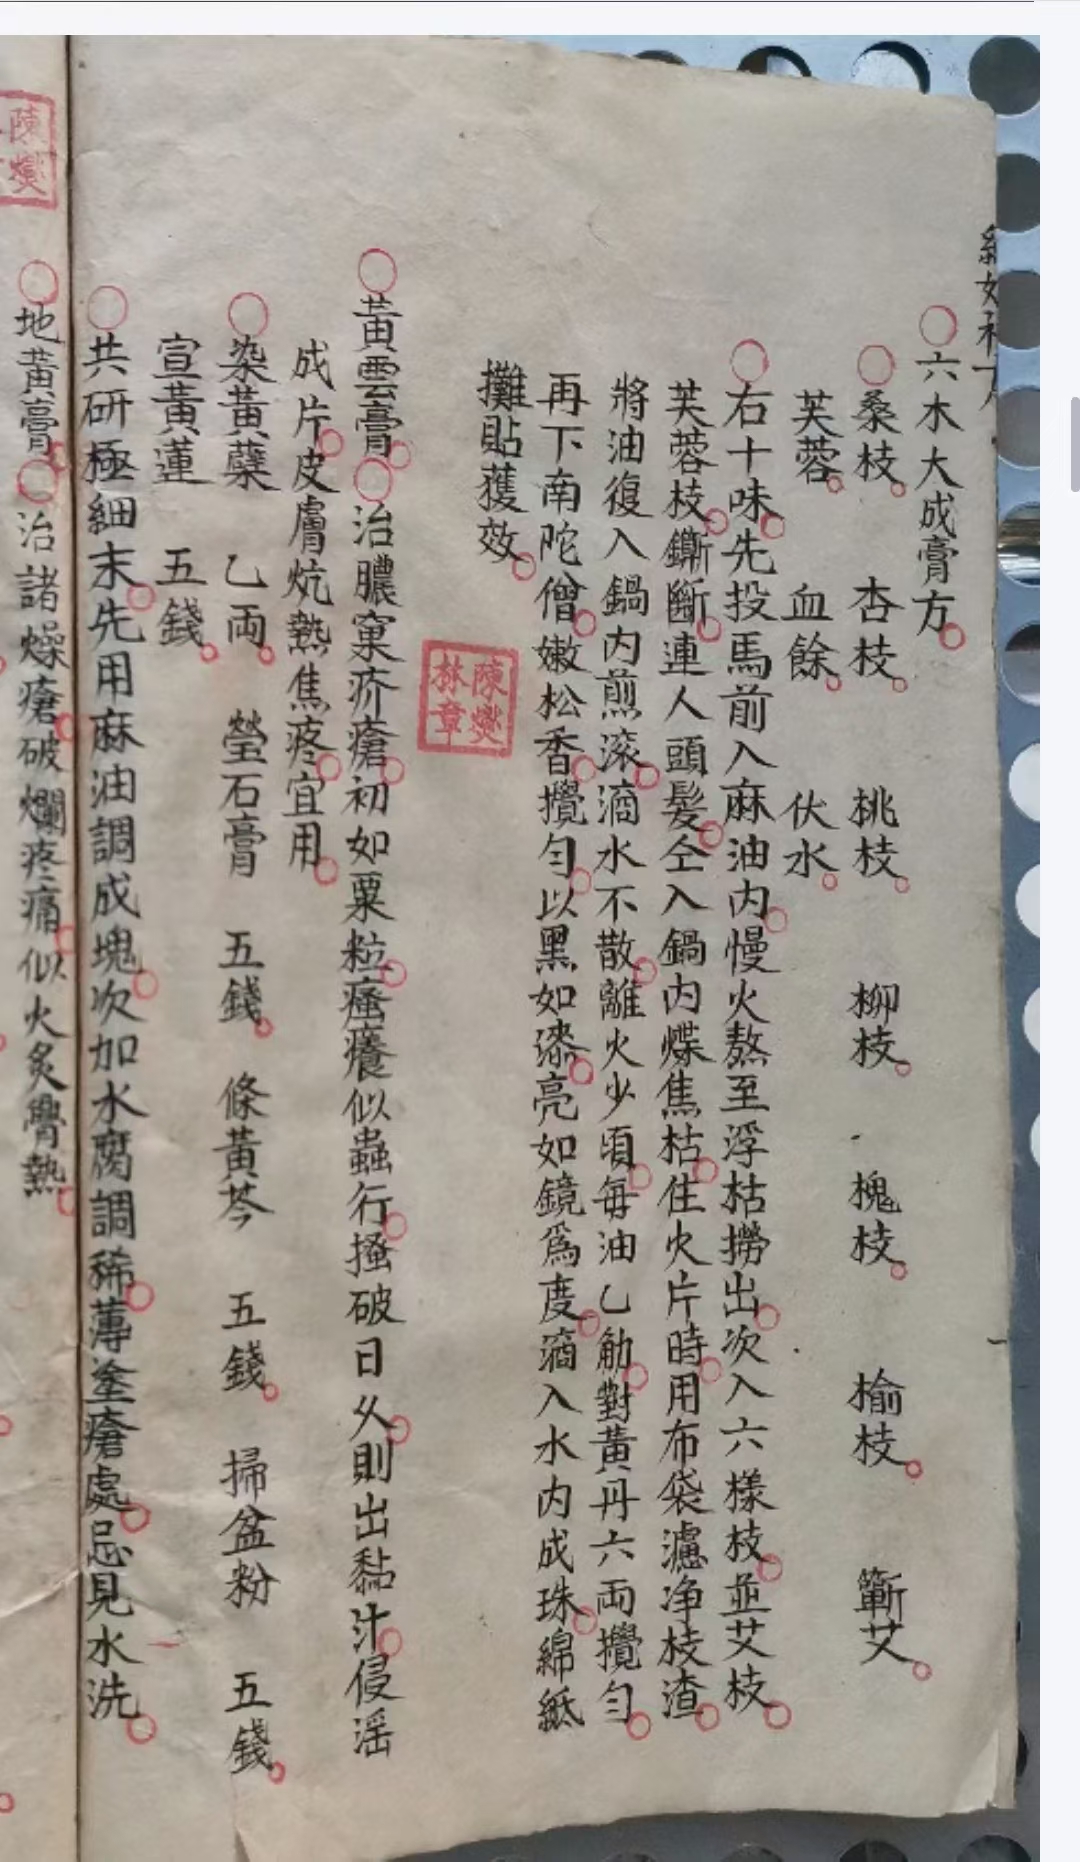 六木大成膏方
桑枝 杏枝 桃枝 柳枝 槐枝 榆枝 蘄艾
芙蓉 血餘 伏水
右十味先投馬前入麻油内慢火熬至浮枯撈出次入六樣枝並艾枝
芙蓉枝鐁斷連人頭髮仝入鍋内煠焦枯住火片時用布袋濾净枝渣
將油復入鍋内煎滚滴水不散離火少頃每油乙觔對黃丹六兩攪匀
再下南陀僧嫩松香攪匀以黑如漆亮如鏡爲度滴入水内成珠綿紙
攤貼獲效
陳爕
林章
黃雲膏治膿窠疥瘡初如粟粒瘙癢似蟲行搔破日久則出黏汁侵淫
成片皮膚炕熱焦疼宜用
染黃蘗 乙兩 瑩石膏 五錢 條黃芩 五錢 掃盆粉 五錢
宣黃蓮 五錢
共研極細末先用麻油調成塊次加水腐調稀薄塗瘡處忌見水洗
地黃膏治諸燥瘡破爛疼痛似火炙
陳爕